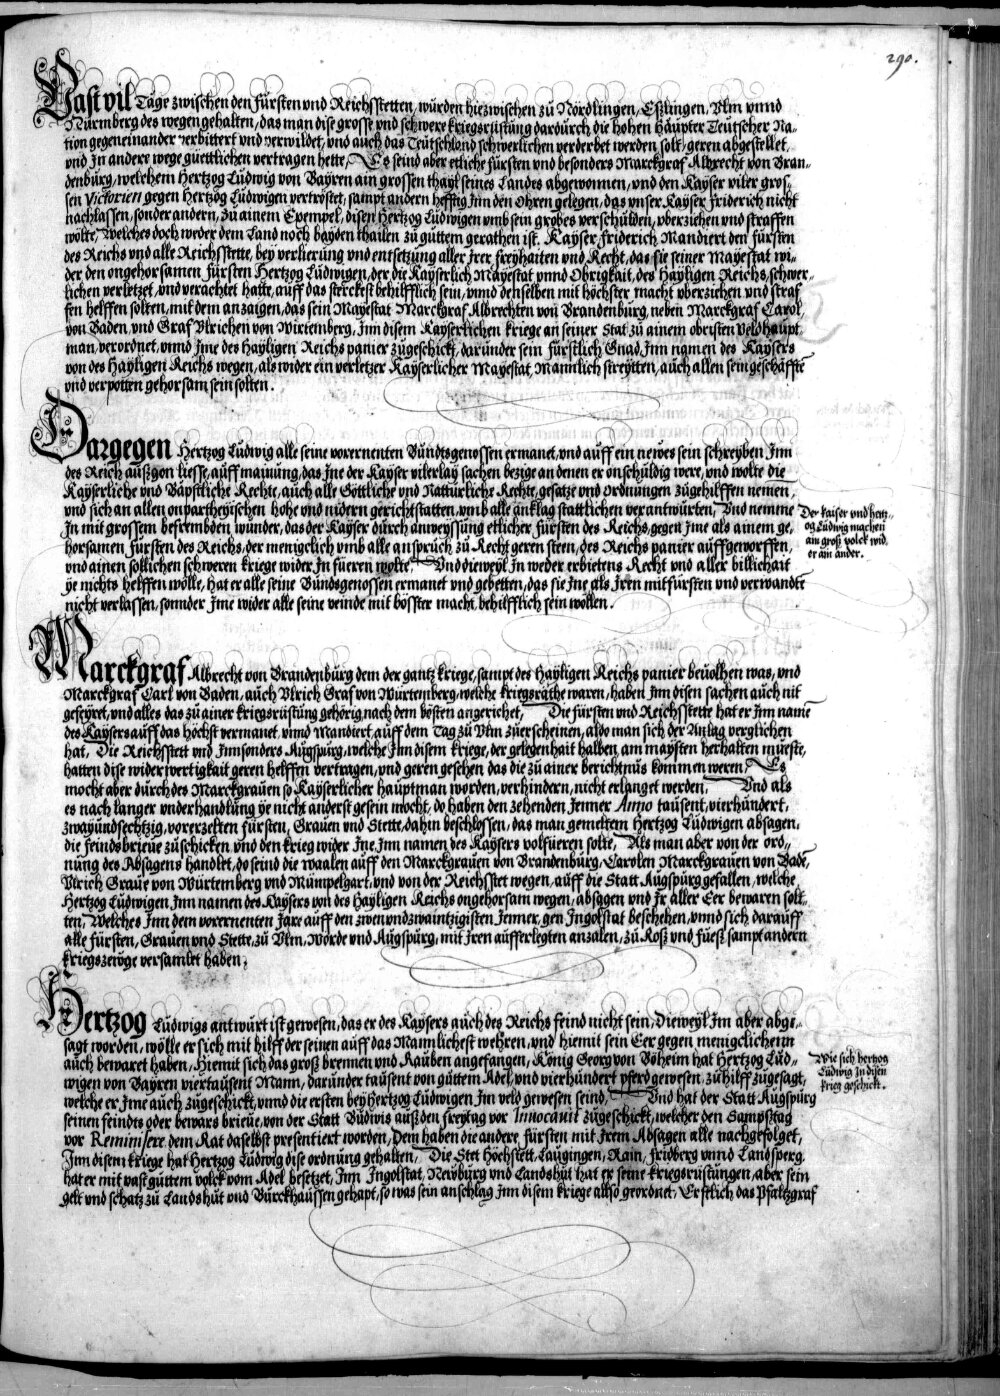 290.
Vast vil Täge zwischen den fürsten vnd Reichsstetten, würden hiezwischen zü Nördlingen, Eßlingen, Vlm vnnd
Nürmberg des wegen gehalten, das man dise grosse vnd schwere kriegsrüstüng dardürch die hohen häüpter Teütscher Na⸗
tion gegeneinander verbittert vnd verwildet, vnd aüch das Teütschlond schwerlichen verderbet werden solt, geren abgestellet,
vnd Jn andere wege güettlichen vertragen hette, Es seind aber etliche fürsten vnd besonders Marckgraf Albrecht von Bran⸗
denbürg, welchem Hertzog Lüdwig von Bayren ain grossen thayl seines Landes abgewonnen, vnd den Kayser viler gros⸗
sen Victorien gegen Hertzog Lüdwigen vertröstet, sampt andern hefftig Jnn den Ohren gelegen, das vnser Kayser friderich nicht
nachlassen, sonder andern, zü ainem Exempel, disen Hertzog Lüdwigen vmb sein grobes verschülden, vberziehen vnd straffen
wölte, Welches doch weder dem Land noch bayden thailen zü güttem gerathen ist. Kayser friderich Mandiert den fürsten
des Reichs vnd alle Reichsstette, bey verlierüng vnd entsetzüng aller Jrer freyhaiten vnd Recht, das sie seiner Mayestat wi⸗
der den ongehorsamen fürsten Hertzog Lüdwigen, der die Kayserlich Mayestat vnnd Obrigkait, des Hayligen Reichs, schwer⸗
lichen verletzet, vnd verachtet hatte, aüff das sterckest behilfflich sein, vnnd denselben mit höchster macht vberziehen vnd straf
fen helffen solten, mit dem anzaigen, das sein Mayestat Marckgraf Albrechten von Brandenbürg, neben Marckgraf Carol
von Baden, vnd Graf Vlrichen von Wirtemberg, Jnn disem Kayserlichen kriege an seiner Stat zü ainem obristen Veldhaüpt
man, verordnet, vnnd Jme des Hayligen Reichs panier zügeschickt, daründer sein fürstlich Gnad, Jnn namen des Kaysers
von des Hayligen Reichs wegen, als wider ein verletzer Kayserlicher Mayestat, Mannlich streytten, aüch allen sein geschäfft
vnd verpotten gehorsam sein solten.
Dargegen Hertzog Lüdwig alle seine vorernenten Bündtsgenossen ermanet, vnd aüff ein newes sein schreyben Jnn
des Reich aüßgon liesse, aüff mainüng, das Jne der Kayser vilerlay sachen bezige an denen er onschüldig were, vnd wolte die
Kayserliche vnd Bäpstliche Rechte, aüch alle Göttliche vnd Nattürliche Rechte, gesatze vnd Ordnüngen zügehilffen nemen,
vnd sich an allen onpartheyischen hohe vnd nidern gerichtstatten, vmb alle anklag stattlichen verantwürten, Vnd nemme
Jn mit grossem befrembden wünder, das der Kayser dürch anweyssüng etlicher fürsten des Reichs, gegen Jme als ainem ge⸗
horsamen fürsten des Reichs, der menigclich vmb alle ansprüch zü Recht geren steen, des Reichs panier aüffgeworffen,
vnd ainen sollichen schweren kriege wider Jn füeren wolte, Vnd dieweyl Jn weder erbietens Recht vnd aller billichait
ye nichts helffen wölle, hat er alle seine Bündsgenossen ermanet vnd gebetten, das sie Jne als Jren mitfürsten vnd verwandte
nicht verlassen, sonnder Jme wider alle seine veinde mit bösster macht, behilfflich sein wöllen.
Der kaiser vnd hertz⸗
og Lüdwig machen
ain groß volck wid
er ain ander.
Marckgraf Albrecht von Brandenbürg dem der gantz kriege, sampt des Hayligen Reichs panier beüolhen was, vnd
Marckgraf Carl von Baden, aüch Vlrich Graf von Würtemberg, welche kriegsräthe waren, haben Jnn disen sachen aüch nit
gefeyret, vnd alles das zü ainer kriegsrüstüng gehörig nach dem bösten angerichet, Die fürsten vnd Reichsstette hat er Jnn name
des Kaysers aüff das höchst vermanet, vnnd Mandiert aüff dem Tag zü Vlm züerscheinen, aldo man sich der Anlag verglichen
hat, Die Reichsstett vnd Jnnsonders Aügspürg, welche Jnn disem kriege, der gelegenhait halben, am maysten herhalten müeste,
hatten dise widerwertigkait geren helffen vertragen, vnd geren gesehen das die zü ainer berichtnüs kommen weren, Es
mocht aber dürch des Marckgraüen so Kayserlicher haüptman worden, verhindern, nicht erlanget werden, Vnd als
es nach langer vnderhandlüng ye nicht anderst gesein möcht, do haben den zehenden Jenner Anno taüsent, vierhündert,
zwayündsechtzig, vorerzelten fürsten, Graüen vnd Stette, dahin beschlossen, das man gemeltem Hertzog Lüdwigen absagen,
die feindsbrieüe züschicken, vnd den krieg wider Jne Jnn namen des Kaysers volfüeren solte, Als man aber von der ord⸗
nüng des Absagens handlet, do seind die waalen aüff den Marckgraüen von Brandenbürg, Carolen Marckgraüen von Bade,
Vlrich Graüe von Würtemberg vnd Mümpelgart, vnd von der Reichsstet wegen, aüff die Statt Aügspürg gefallen, welche
Hertzog Lüdwigen Jnn namen des Kaysers von des Hayligen Reichs ongehorsam wegen, absagen vnd Jr aller Eer bewaren solt⸗
ten, Welches Jnn dem vorernenten Jare aüff den zwenvndzwaintzigisten Jenner, gen Jngolstat beschehen, vnnd sich daraüff
alle fürsten, Graüen vnd Stette, zü Vlm, wörde vnd Aügspürg, mit Jren aüfferlegten anzalen, zü Roß vnd füesz sampt andern
kriegszeüge versamlet haben,
Hertzog Lüdwigs antwürt ist gewesen, das er des Kaysers aüch des Reichs feind nicht sein, Dieweyl Jm aber abge⸗
sagt worden, wölle er sich mit hilff der seinen aüff das Mannlichest wehren, vnd hiemit sein Eer gegen menigclichenn
aüch bewaret haben, Hiemit sich das groß brennen vnd Raüben angefangen, König Georg von Böheim hat Hertzog Lüd⸗
wigen von Bayren viertaüsent Mann, daründer taüsent von güttem Adel, vnd vierhündert pferd gewesen, zü hilff zügesagt,
welche er Jme aüch zügeschickt, vnnd die ersten bey Hertzog Lüdwigen Jm veld gewesen seind, Vnd hat der Statt Aügspürg
seinen feindts oder bewars brieüe, von der Statt Büdwis aüß den freytag vor Innocauit zügeschickt, welcher den Sampsztag
vor Reminisere, dem Rat daselbst presentiert worden, Dem haben die andere fürsten mit Jrem Absagen alle nachgefolget,
Jnn disem kriege hat Hertzog Lüdwig dise ordnüng gehalten, Die Stet Höchstett, Laügingen, Rain, fridberg vnnd Landsperg,
hat er mit vast güttem volck vom Adel besetzet, Jnn Jngolstat, Newbürg vnd Landshüt hat er seine kriegsrüstüngen, aber sein
gelt vnd schatz zü Landshüt vnd Bürckhaüssen gehapt, so was sein anschlag Jnn disem kriege allso geordnet, Erstlich das Pfaltzgraf
Wie sich hertzog
Lüdwig Jn disen
krieg geschickt.